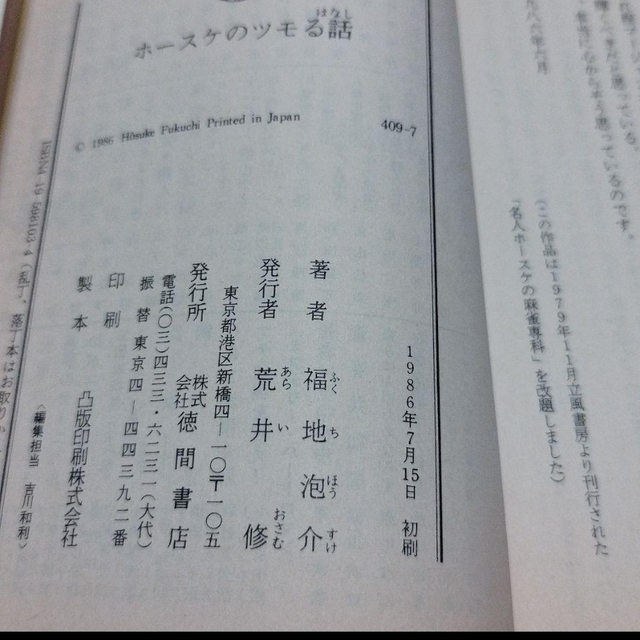 (この作品は1979年11月立風書房より刊行された
「名人ホースケの麻雀専科」を改題しました)
はなし
ホースケのツモる話
© 1986 Hôsuke Fukuchi Printed in Japan
409-7
1986年7月15日 初刷
著者 福地泡介
ふくちほうすけ
発行者 荒井修
あらいおさむ
東京都港区新橋四—一〇〒一〇五
発行所 株式会社徳間書店
電話(〇三)四三三・六二三一(大代)
振替東京四—四四三九二番
印刷
製本 凸版印刷株式会社
〈編集担当 吉川和利〉